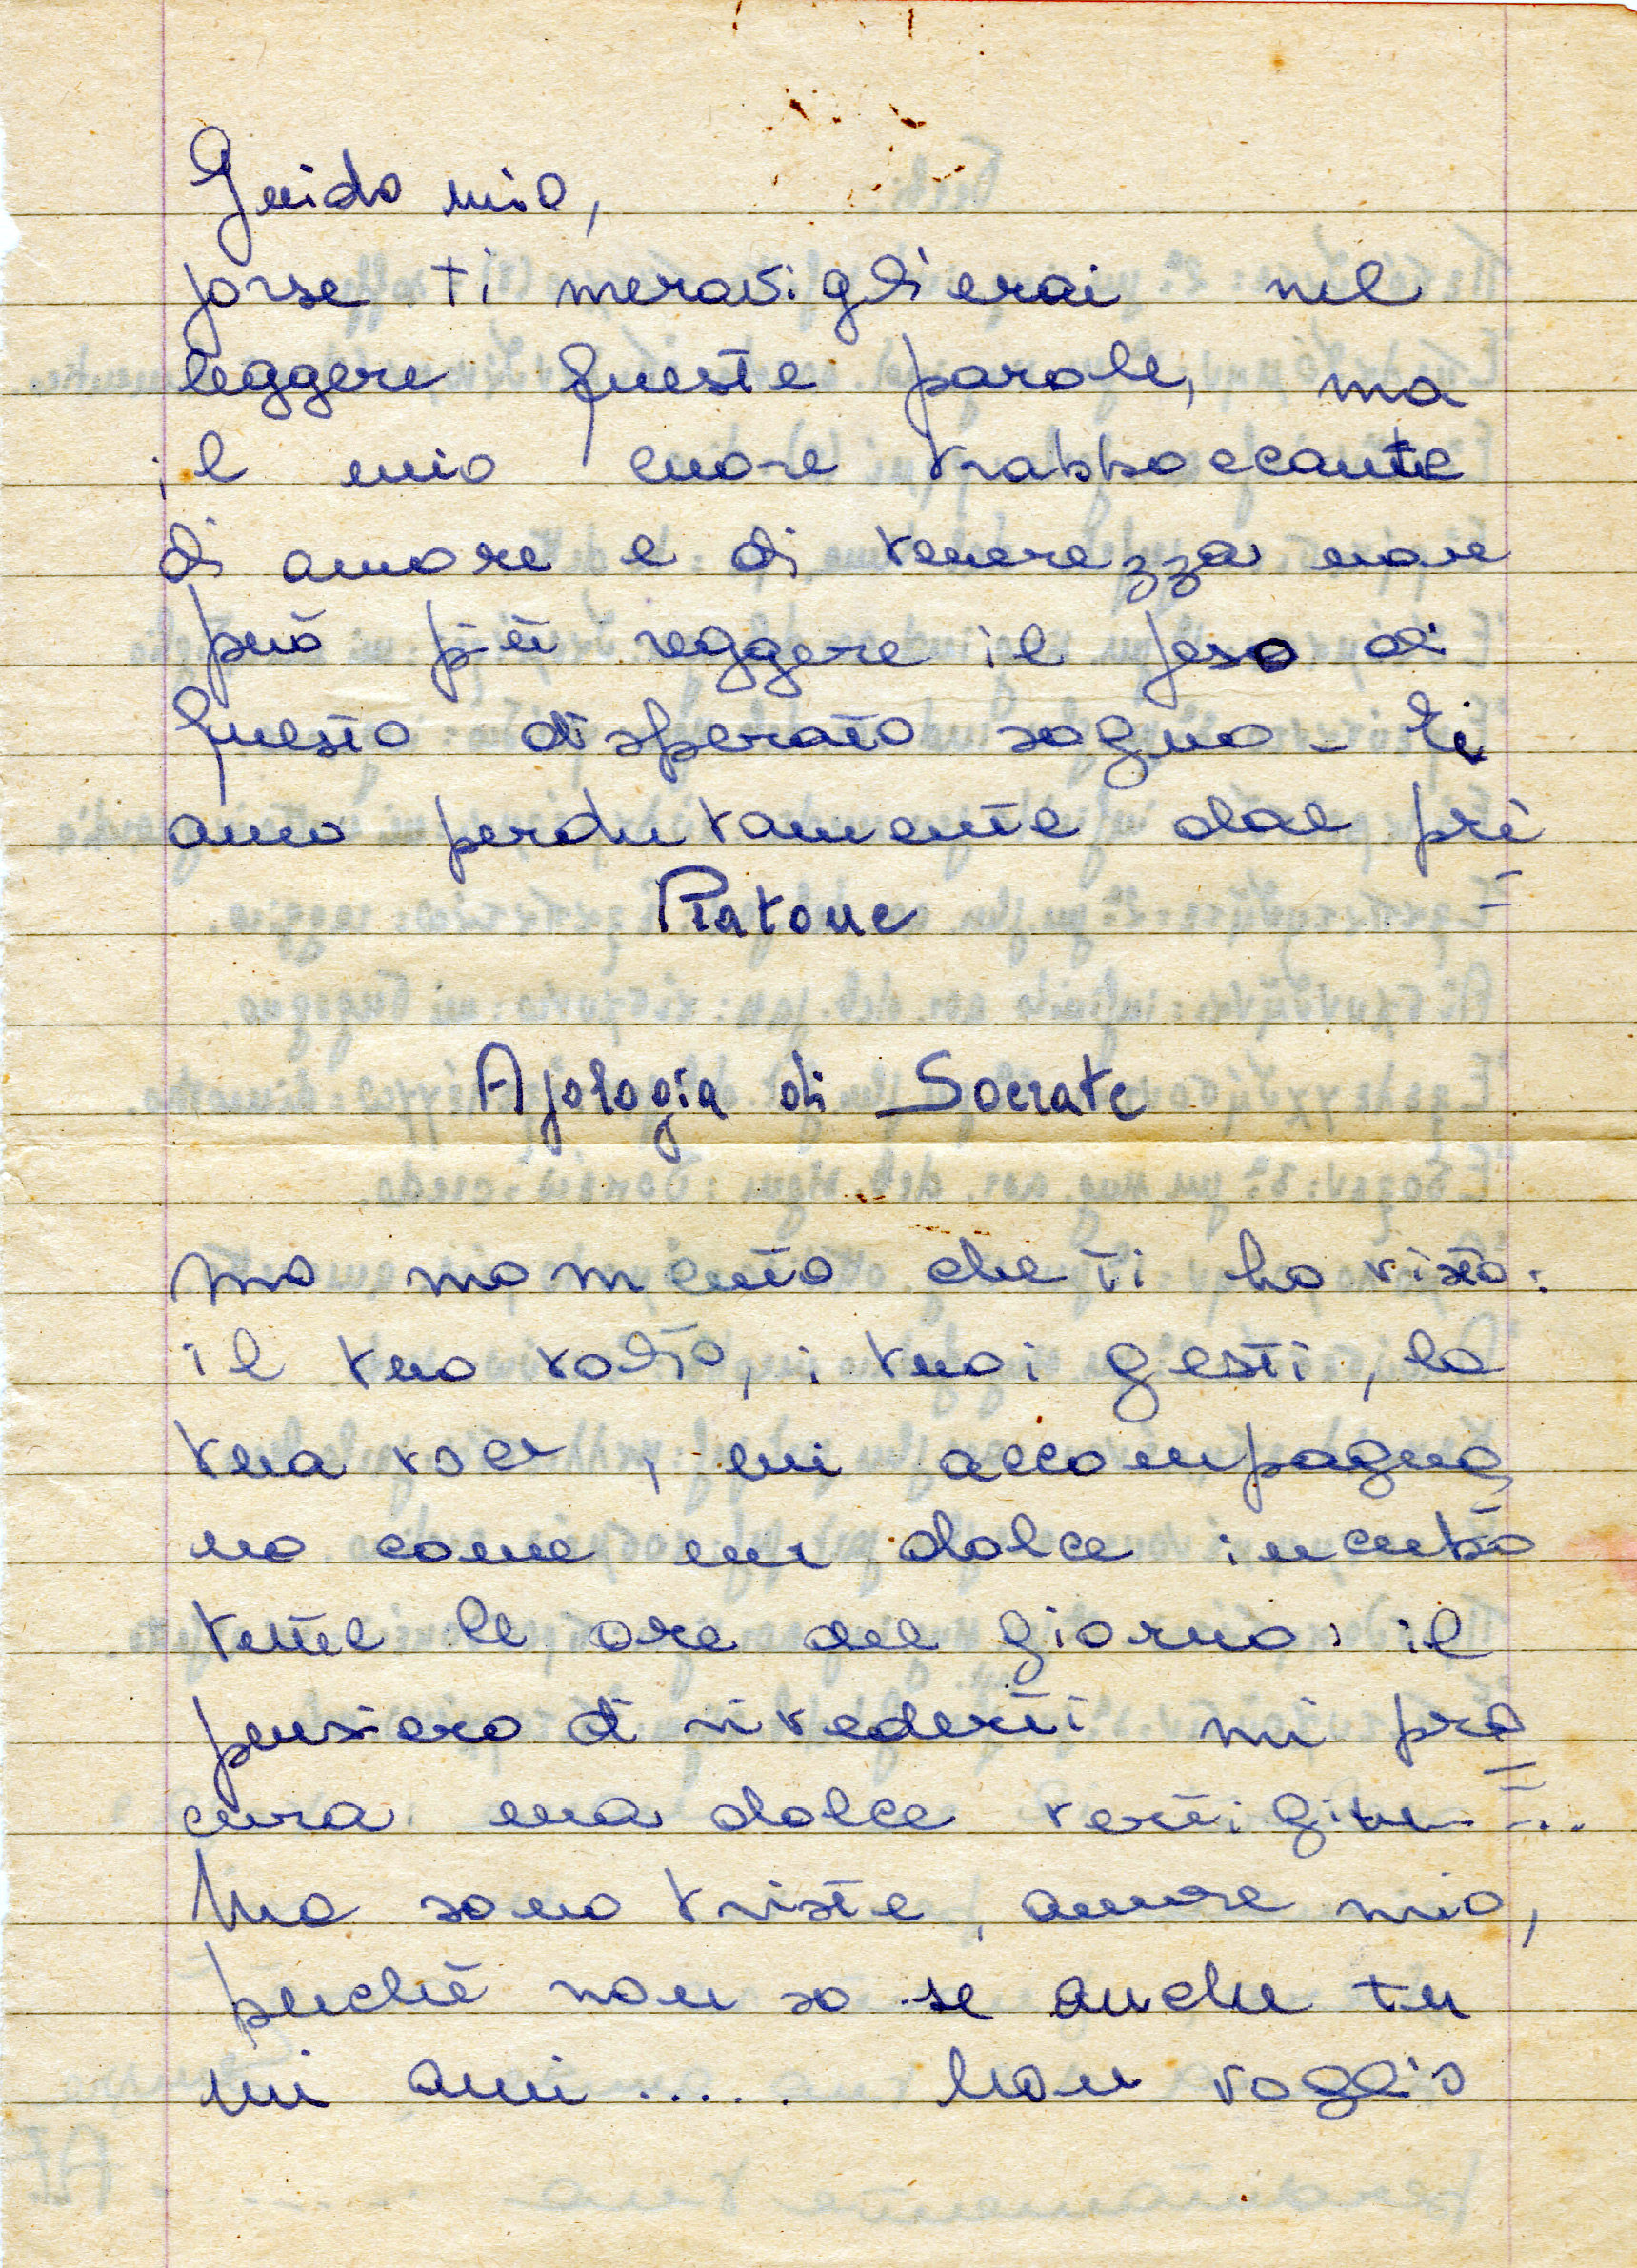 Guido mio,
forse ti meraviglierai nel
leggere queste parole, ma
il mio cuore trabboccante
di amore e di tenerezza non
può più reggere il peso di
questo disperato sogno - Ti
amo perdutamente dal pri=
Platone
Apologia di Socrate
mo momento che ti ho visto:
il tuo volto, i tuoi gesti, la
tua voce, mi accompagna
no come un dolce incubo
tutte le ore del giorno: il
pensiero di rivederti mi pro=
cura una dolce vertigine....
Ma sono triste, amore mio,
perché non so se anche tu
mi ami ..... Non voglio